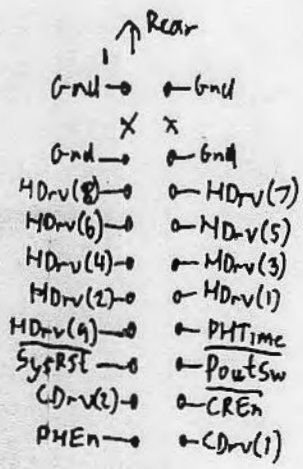 Rear
1
Gnd Gnd
X X
Gnd Gnd
HDrv(8) HDrv(7)
HDrv(6) HDrv(5)
HDrv(4) HDrv(3)
HDrv(2) HDrv(1)
HDrv(9) PHTime
SysRSt PoutSw
CDrv(2) CREn
PHEn CDrv(1)